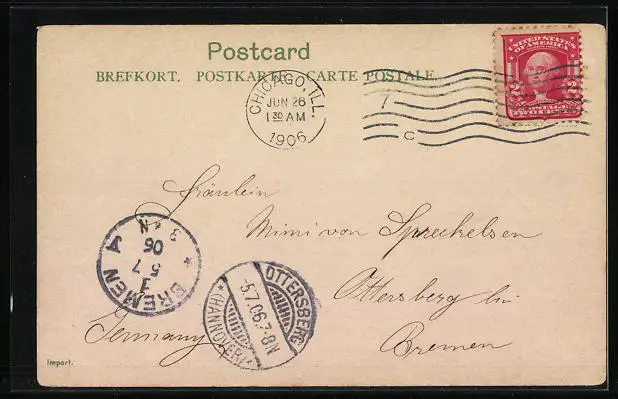 Postcard
BREFKORT. POSTKARTE. CARTE POSTALE.
CHICAGO, ILL.
JUN 26
1 30 AM
1906
C
UNITED STATES
OF AMERICA
2 2
POSTAGE
TWO CENTS
Fräulein
Mimi von Spreckelsen
Ottersberg bei
Bremen
Germany
BREMEN
A
1
5 7
06
3-4 N
*
OTTERSBERG
5.7.06.7-8N
*(HANNOVER)*
Import.